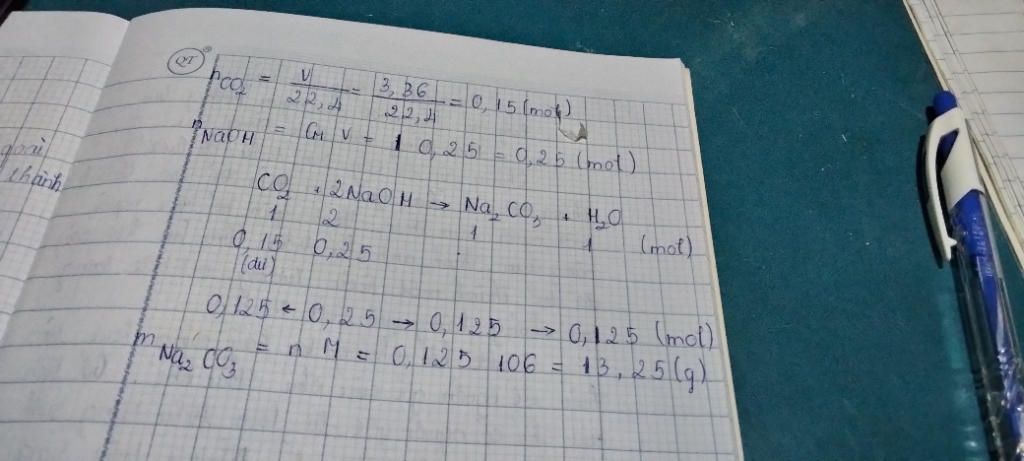 QT
nCO2 = V/22,4 = 3,36/22,4 = 0,15 (mol)
nNaOH = CM V = 1 0,25 = 0,25 (mol)
CO2 + 2NaOH → Na2CO3 + H2O
1 2 1 1 (mol)
0,15 0,25
(dư)
0,125 ← 0,25 → 0,125 → 0,125 (mol)
mNa2CO3 = n M = 0,125 106 = 13,25 (g)
thành